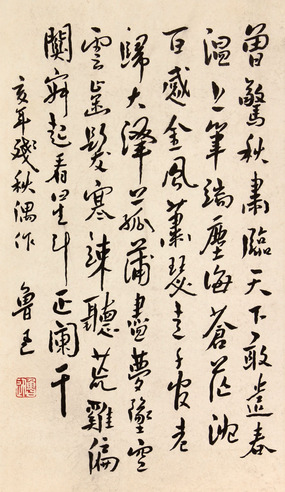 曾驚秋肅臨天下敢遣春
溫上筆端塵海蒼茫沈
百感金風蕭瑟走千官老
歸大澤菰蒲盡夢墜空
雲齒髮寒竦聽荒雞偏
闃寂起看星斗正闌干
亥年殘秋偶作 魯迅